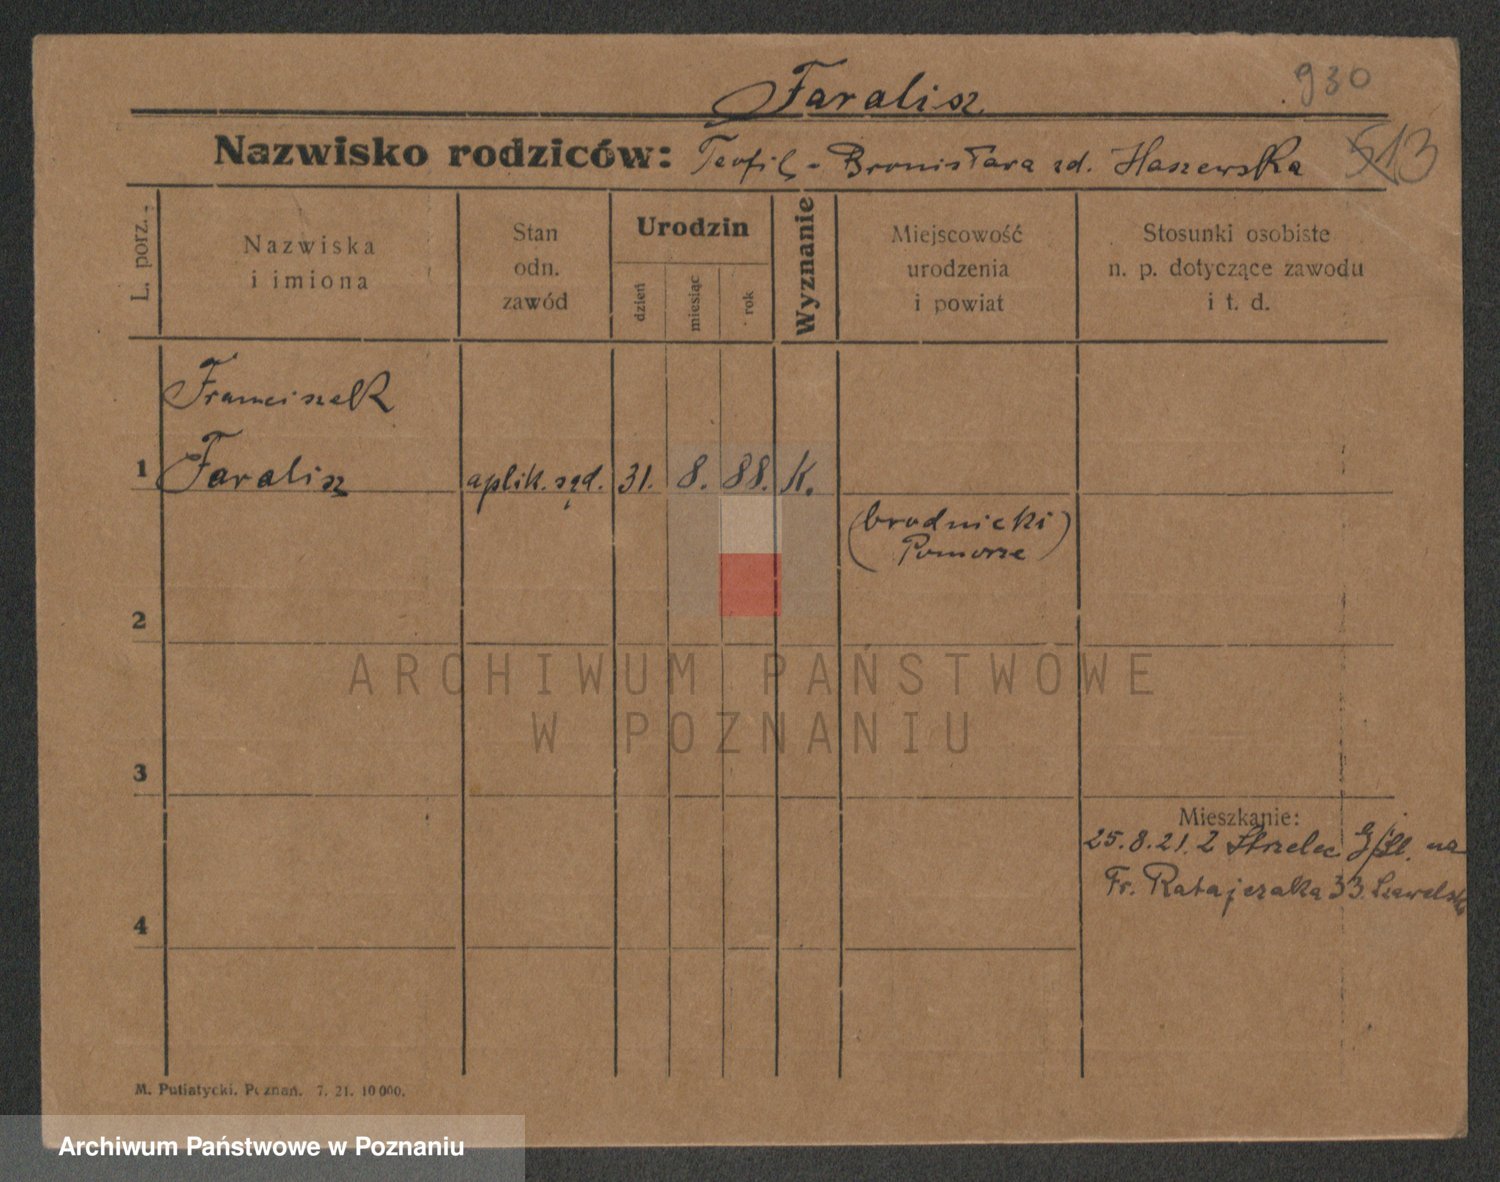 Faralisz
930
Nazwisko rodziców: Teofil - Bronisława zd. Haszewska 513
L. porz.
Nazwiska
i imiona
Stan
odn.
zawód
Urodzin
dzień
miesiąc
rok
Wyznanie
Miejscowość
urodzenia
i powiat
Stosunki osobiste
n. p. dotyczące zawodu
i t. d.
Franciszek
1 Faralisz aplik. sąd. 31. 8. 88. K.
(brodnicki
Pomorze)
2
ARCHIWUM PAŃSTWOWE
W POZNANIU
3
Mieszkanie:
25.8.21. Z Strzelec na
Fr. Ratajczaka 33.
4
M. Putiatycki. Poznań. 7. 21. 10 000.
Archiwum Państwowe w Poznaniu